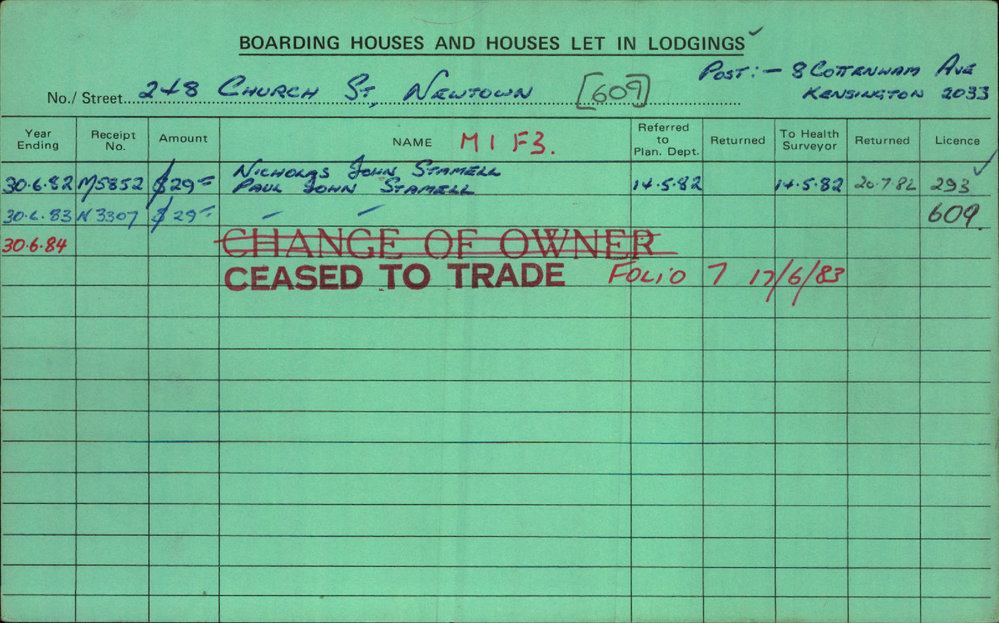 BOARDING HOUSES AND HOUSES LET IN LODGINGS ✓
POST:- 8 COTTENHAM AVE
KENSINGTON 2033
No./ Street 248 CHURCH ST, NEWTOWN [609]
Year Ending Receipt No. Amount NAME M1 F3. Referred to Plan. Dept. Returned To Health Surveyor Returned Licence
NICHOLAS JOHN STAMELL
30.6.82 M5852 $29= PAUL JOHN STAMELL 14.5.82 14.5.82 20.7.82 293 ✓
30.6.83 N3307 $29= — — 609.
30.6.84 CHANGE OF OWNER
CEASED TO TRADE FOLIO 7 17/6/83